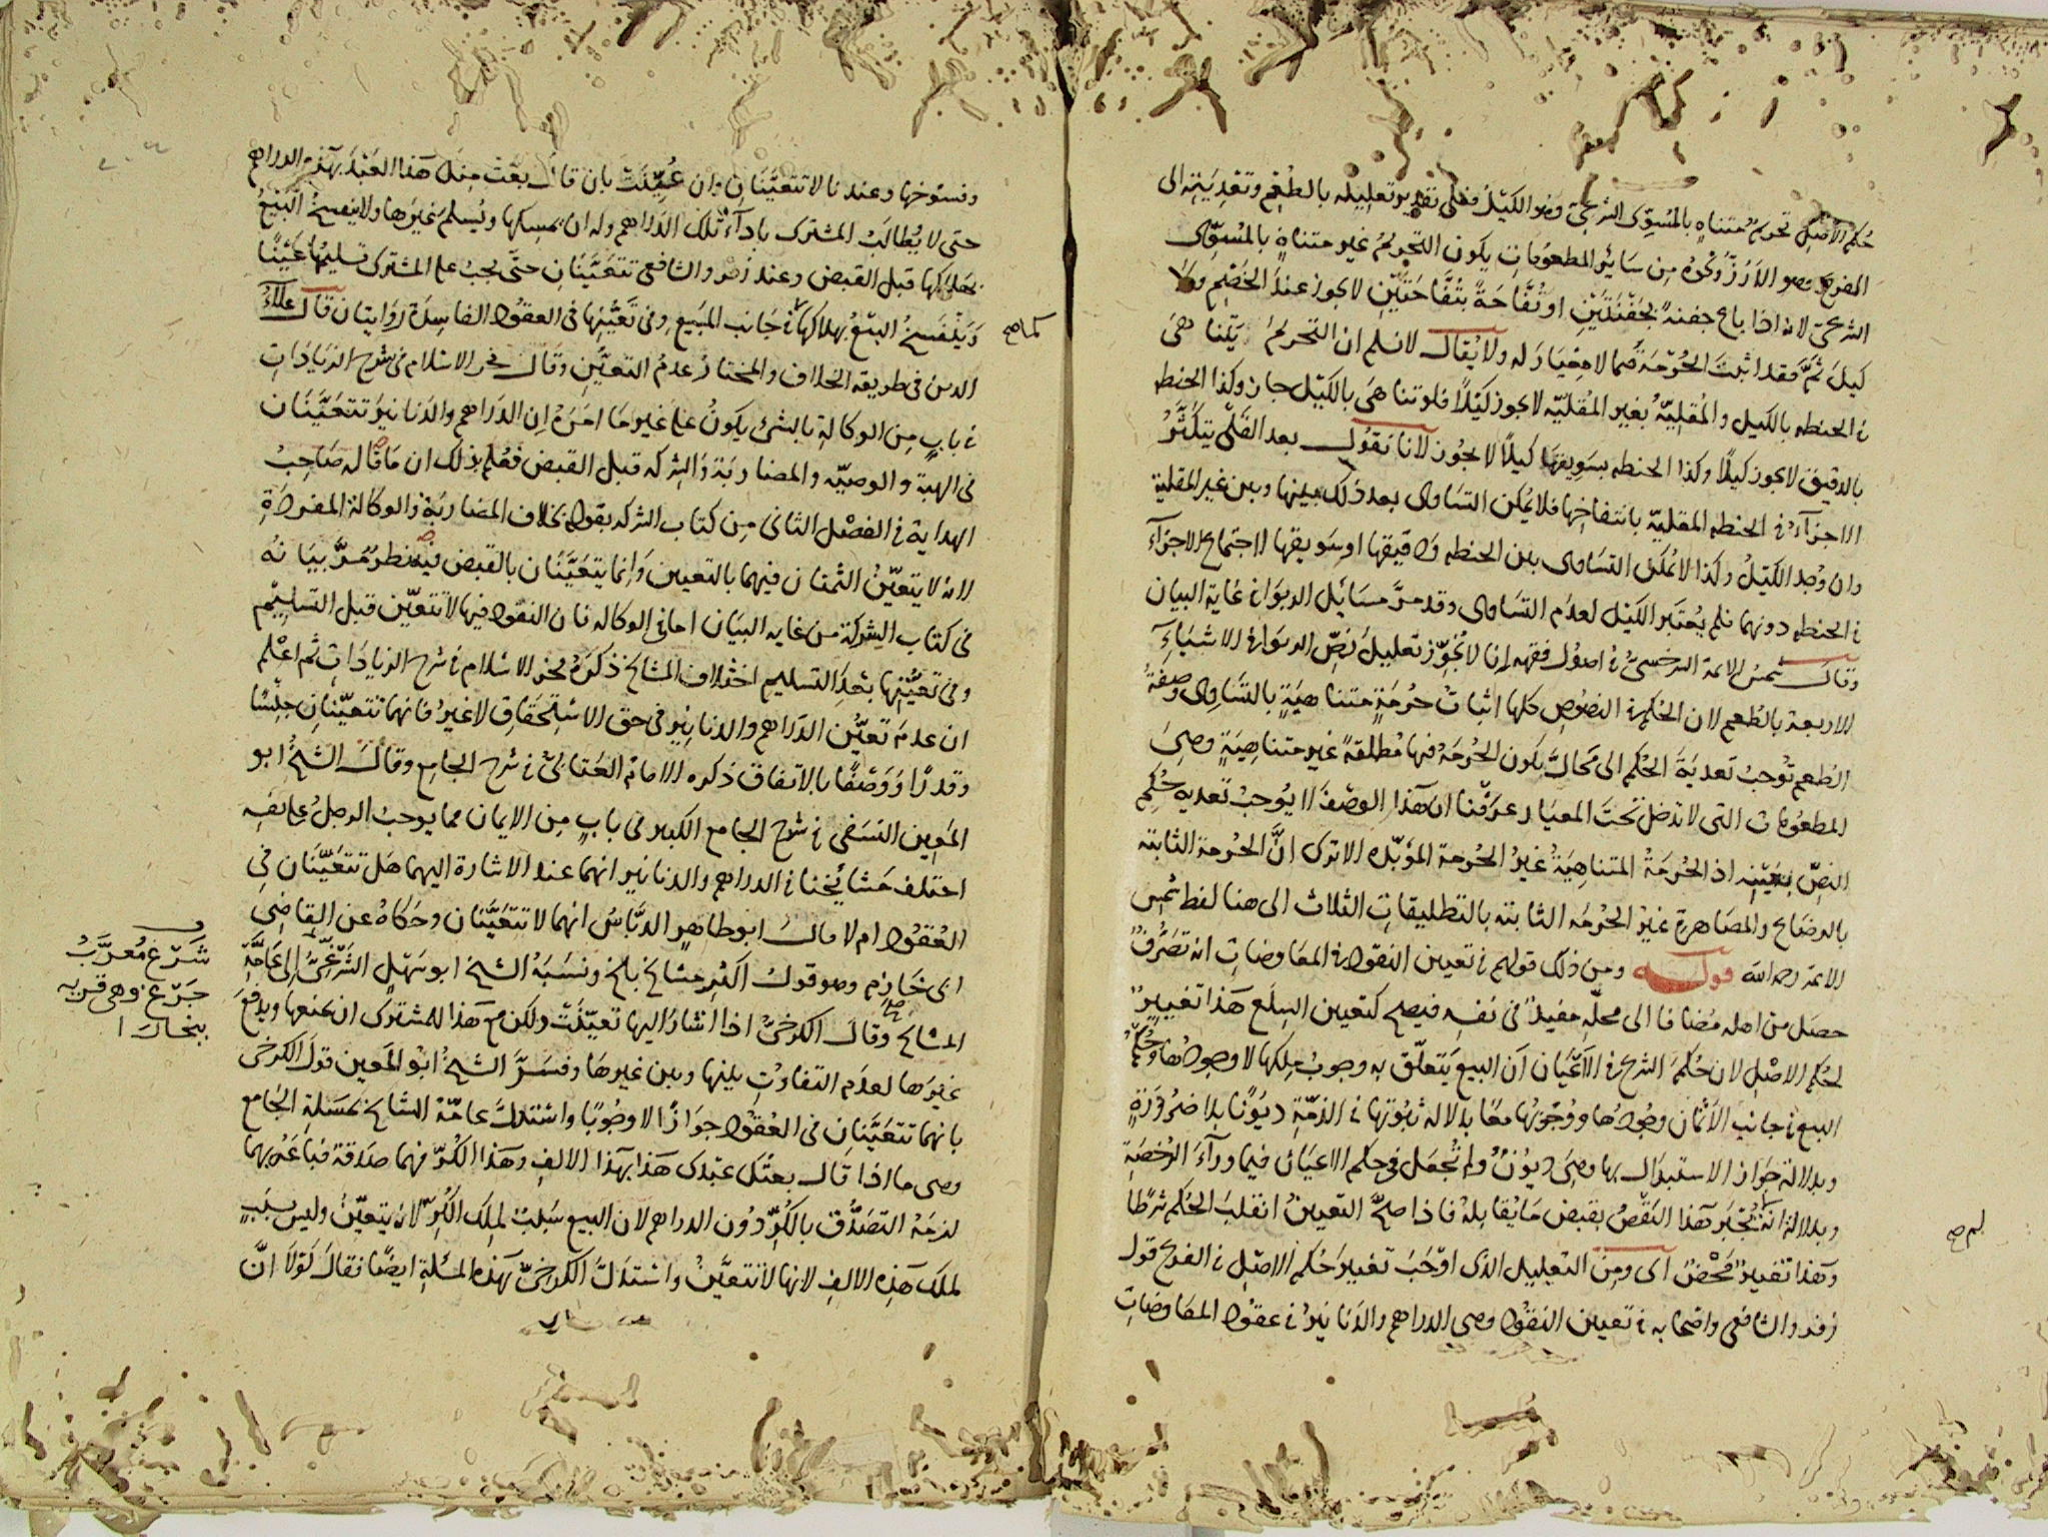 حكم الأصل تحريم متناه بالمسوى الشرعي وهو الكيل وفي تقديم تعليله بالطعم وتعديته الى
الفرع وهو الأرز وغيره من سائر المطعومات يكون التحريم غير متناه بالمسوى
الشرعي لانه اذا باع جفنة بجفنتين او تفاحة بتفاحتين لا يجوز عند الخصم ولا
كيل ثم فقد اثبت الحرمة فيما لا معيار له ولا يقال لا نسلم ان التحريم يتناهى
في الحنطه بالكيل والمقلية بغير المقلية لا يجوز كيلا فلو تناهى بالكيل جاز وكذا الحنطه
بالدقيق لا يجوز كيلا وكذا الحنطه بسويقها كيلا لا يجوز لانا نقول بعد القلي يتكثر
الاجزاء في الحنطه المقلية بانتفاخها فلا يمكن التساوى بعد ذلك بينها وبين غير المقلية
وان وجد الكيل وكذا لا يمكن التساوى بين الحنطه ودقيقها او سويقها لاجتماع الاجزاء
في الحنطه دونهما فلم يعتبر الكيل لعدم التساوى وقد مر مسائل الربوا في غاية البيان
وقال شمس الائمة السرخسي في اصول فقهه انا لا نجوز تعليل نص الربوا في الاشياء
الاربعة بالطعم لان الحكم في النصوص كلها اثبات حرمة متناهية بالتساوى وصفة
الطعم توجب تعدية الحكم الى محال يكون الحرمة فيها مطلقة غير متناهية وهي
المطعومات التي لا تدخل تحت المعيار عرفنا ان هذا الوصف لا يوجب تعديه حكم
النص بعينه اذ الحرمة المتناهية غير الحرمة المؤبده الا ترى ان الحرمة الثابته
بالرضاع والمصاهرة غير الحرمه الثابته بالتطليقات الثلاث الى هنا لفظ شمس
الائمة رحمه الله قوله ومن ذلك قولهم في تعيين النقود في المعاوضات انه تصرف
حصل من اهله مضافا الى محله مفيد في نفسه فيصح كتعيين السلع هذا تغيير
لحكم الاصل لان حكم الشرع في الاعيان ان البيع يتعلق به وجوب ملكها لا وجودها وحكم
البيع في جانب الأثمان وجودها ووجوبها معا بدلاله ثبوتها في الذمة ديونا بلا ضرورة
وبدلالة جواز الاستبدال بها وهي ديون ولم تجعل في حكم الاعيان فيما وراء الرخصة
وبدلالة انه لم يجبر هذا النقص بقبض ما يقابله فاذا صح التعيين انقلب الحكم شرطا
وهذا تغيير محض اى ومن التعليل الذى اوجب تغيير حكم الاصل في الفرع قول
زفر والشافعي واصحابه في تعيين النقود وهي الدراهم والدنانير في عقود المعاوضات
لم صح
وفسوخها وعندنا لا تتعينان وان عينت بان قال بعت منك هذا العبد بهذه الدراهم
حتى لا يطالب المشترى باداء تلك الدراهم وله ان يمسكها ويسلم غيرها ولا ينفسخ البيع
بهلاكها قبل القبض وعند زفر والشافعي تتعينان حتى يجب على المشترى تسليمها عينا
وينفسخ البيع بهلاكها كما في جانب المبيع وفي تعينها في العقود الفاسدة روايتان قال علاء
الدين في طريقه الخلاف والمختار عدم التعين وقال فخر الاسلام في شرح الزيادات
في باب من الوكالة بالشرى يكون على غير ما امره ان الدراهم والدنانير تتعينان
في الهبة والوصية والمضاربة والشركه قبل القبض فعلم بذلك ان ما قاله صاحب
الهداية في الفصل الثاني من كتاب الشركه بقوله بخلاف المضاربة والوكالة المفردة
لانه لا يتعين الثمنان فيهما بالتعيين وانما يتعينان بالقبض فيه نظر مر بيانه
في كتاب الشركة من غايه البيان اما في الوكاله فان النقود فيها لا تتعين قبل التسليم
وفي تعينها بعد التسليم اختلاف المشايخ ذكره فخر الاسلام في شرح الزيادات ثم اعلم
ان عدم تعين الدراهم والدنانير في حق الاستحقاق لا غير فانهما تتعينان جنسا
وقدرا ووصفا بالاتفاق ذكره الامام العتابي في شرح الجامع وقال الشيخ ابو
المعين النسفي في شرح الجامع الكبير في باب من الايمان مما يوجب الرجل على نفسه
اختلف مشائخنا في الدراهم والدنانير انهما عند الاشارة اليهما هل تتعينان في
العقود ام لا قال ابو طاهر الدباس انهما لا تتعينان وحكاه عن القاضي
ابي خازم وهو قول اكثر مشايخ بلخ ونسبه الشيخ ابو سهل الشرغي الى عامة
المشايخ وقال الكرخي اذا اشار اليها تعينت ولكن مع هذا للمشترى ان يمنعها ويدفع
غيرها لعدم التفاوت بينها وبين غيرها وفسر الشيخ ابو المعين قول الكرخى
بانهما تتعينان في العقود جوازا لا وجوبا واستدل عامة المشايخ بمسئلة الجامع
وهي ما اذا قال بعتك عبدى هذا بهذا الالف وهذا الكر فهما صدقة فباعه بهما
لزمه التصدق بالكر دون الدراهم لان البيع سبب لملك الكر لانه يتعين وليس بسبب
لملك هذه الالف لانها لا تتعين واستدل الكرخي بهذه المسئلة ايضا فقال لولا ان
كما صح
شرغ معرب
جرغ وهي قريه
ببخارا